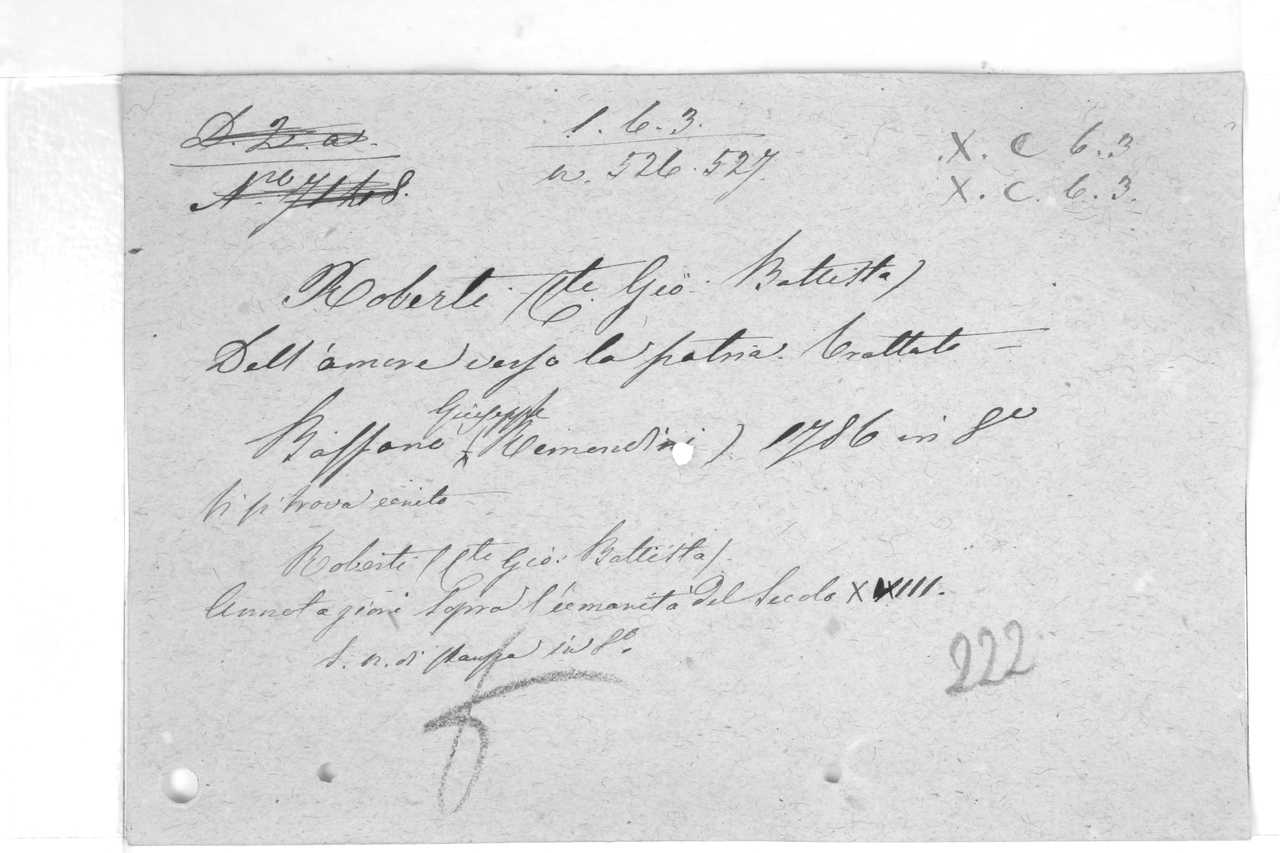 D. 2. a.
N.ro 7148.
1. 6. 3.
n. 526. 527.
X. C 6. 3
X. C. 6. 3.
Roberti (Cte Gio: Battista)
Dell'amore verso la patria. Trattato —
Bassano (Giuseppe Remondini) 1786 in 8o
Vi si trova unito —
Roberti (Cte Gio: Battista).
Annotazioni sopra l'umanità del Secolo XVIII.
S. n. di stampa in 8o.
222